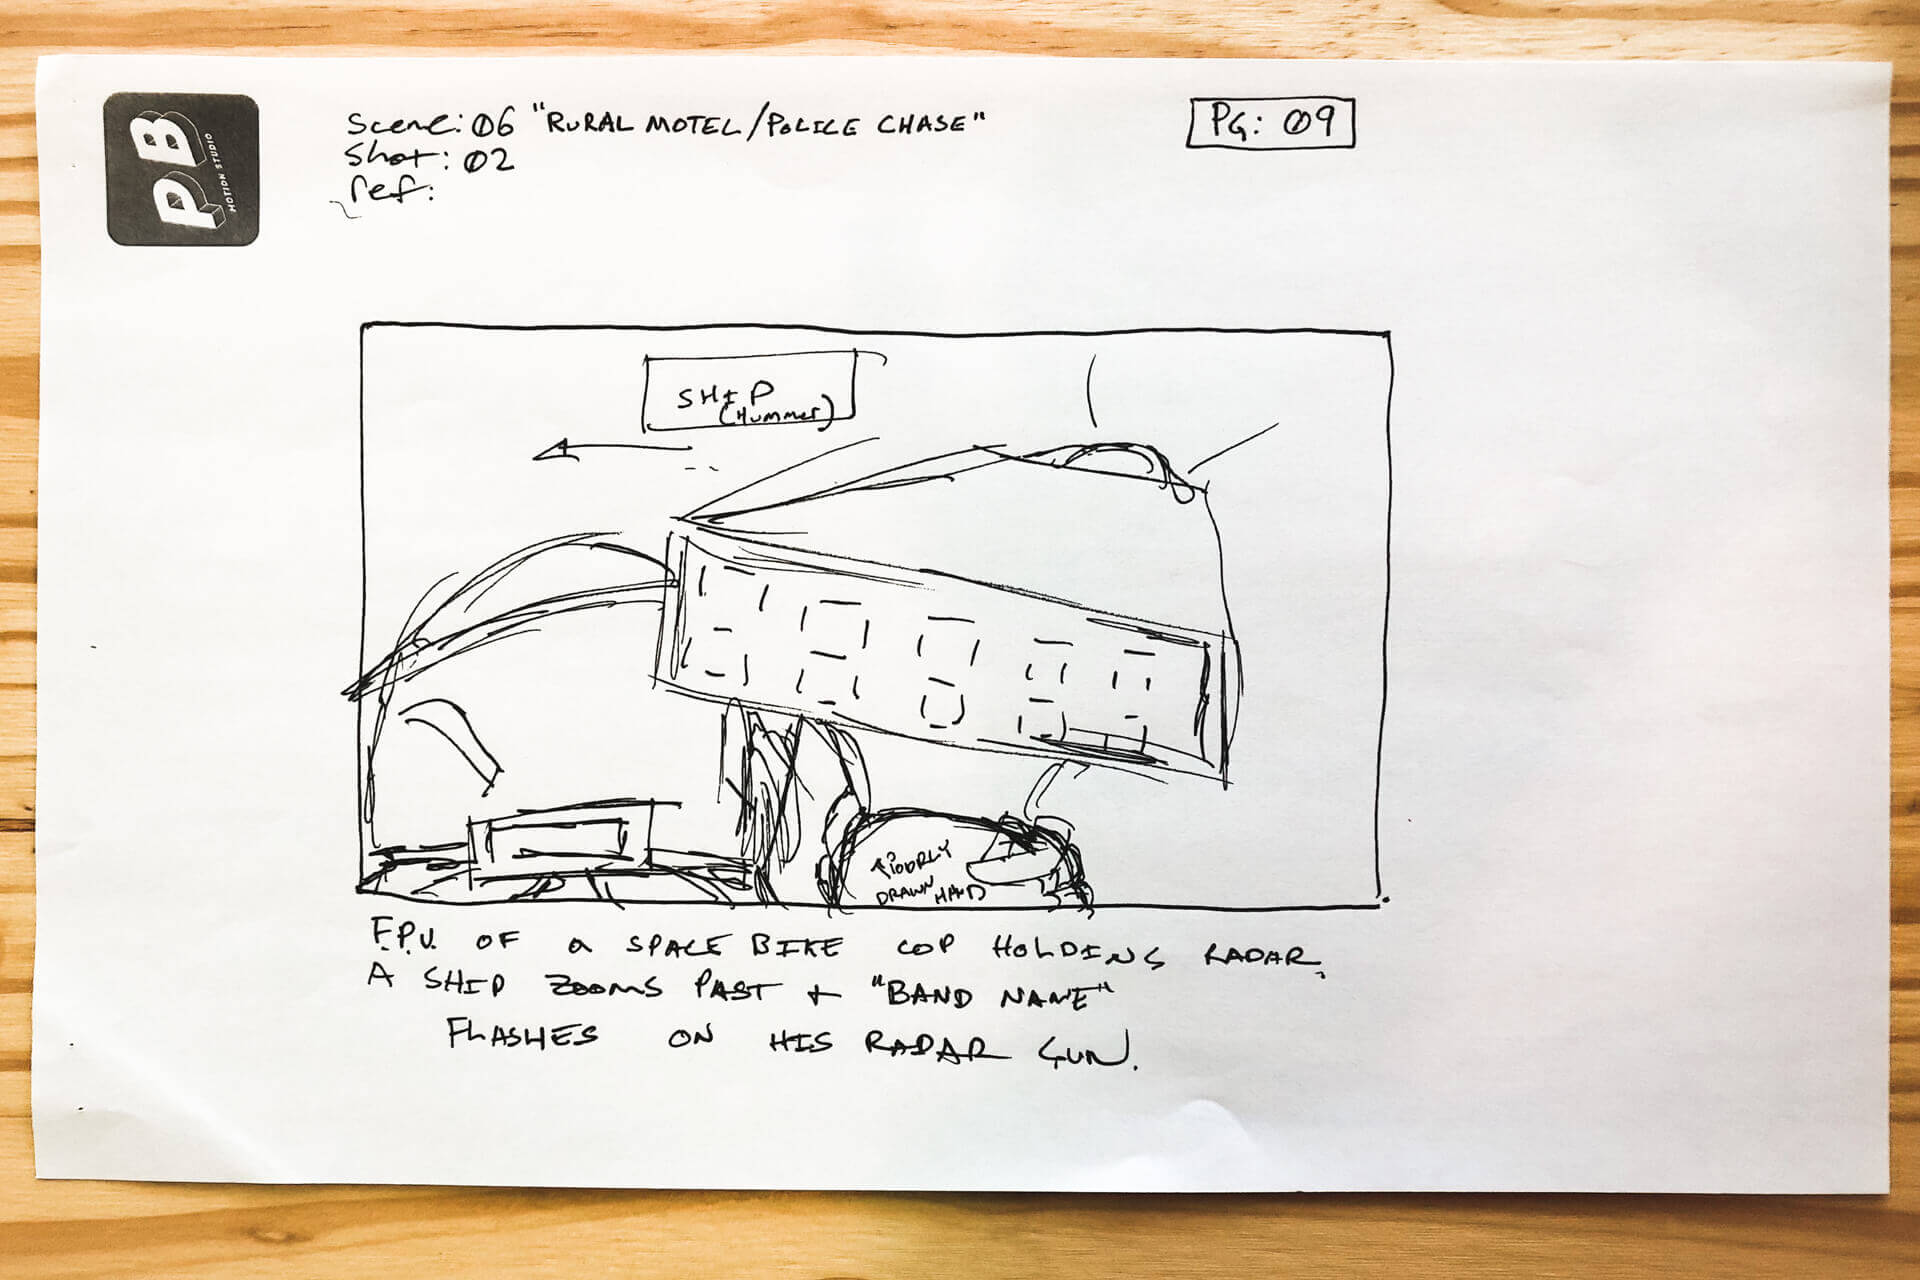 PB
MOTION STUDIO
Scene: 06 "RURAL MOTEL/POLICE CHASE"
Shot: 02
ref:
PG: 09
SHIP
(Hummer)
POORLY
DRAWN HAND
F.P.V. OF a SPACE BIKE COP HOLDING RADAR.
A SHIP ZOOMS PAST + "BAND NAME"
FLASHES ON HIS RADAR GUN.